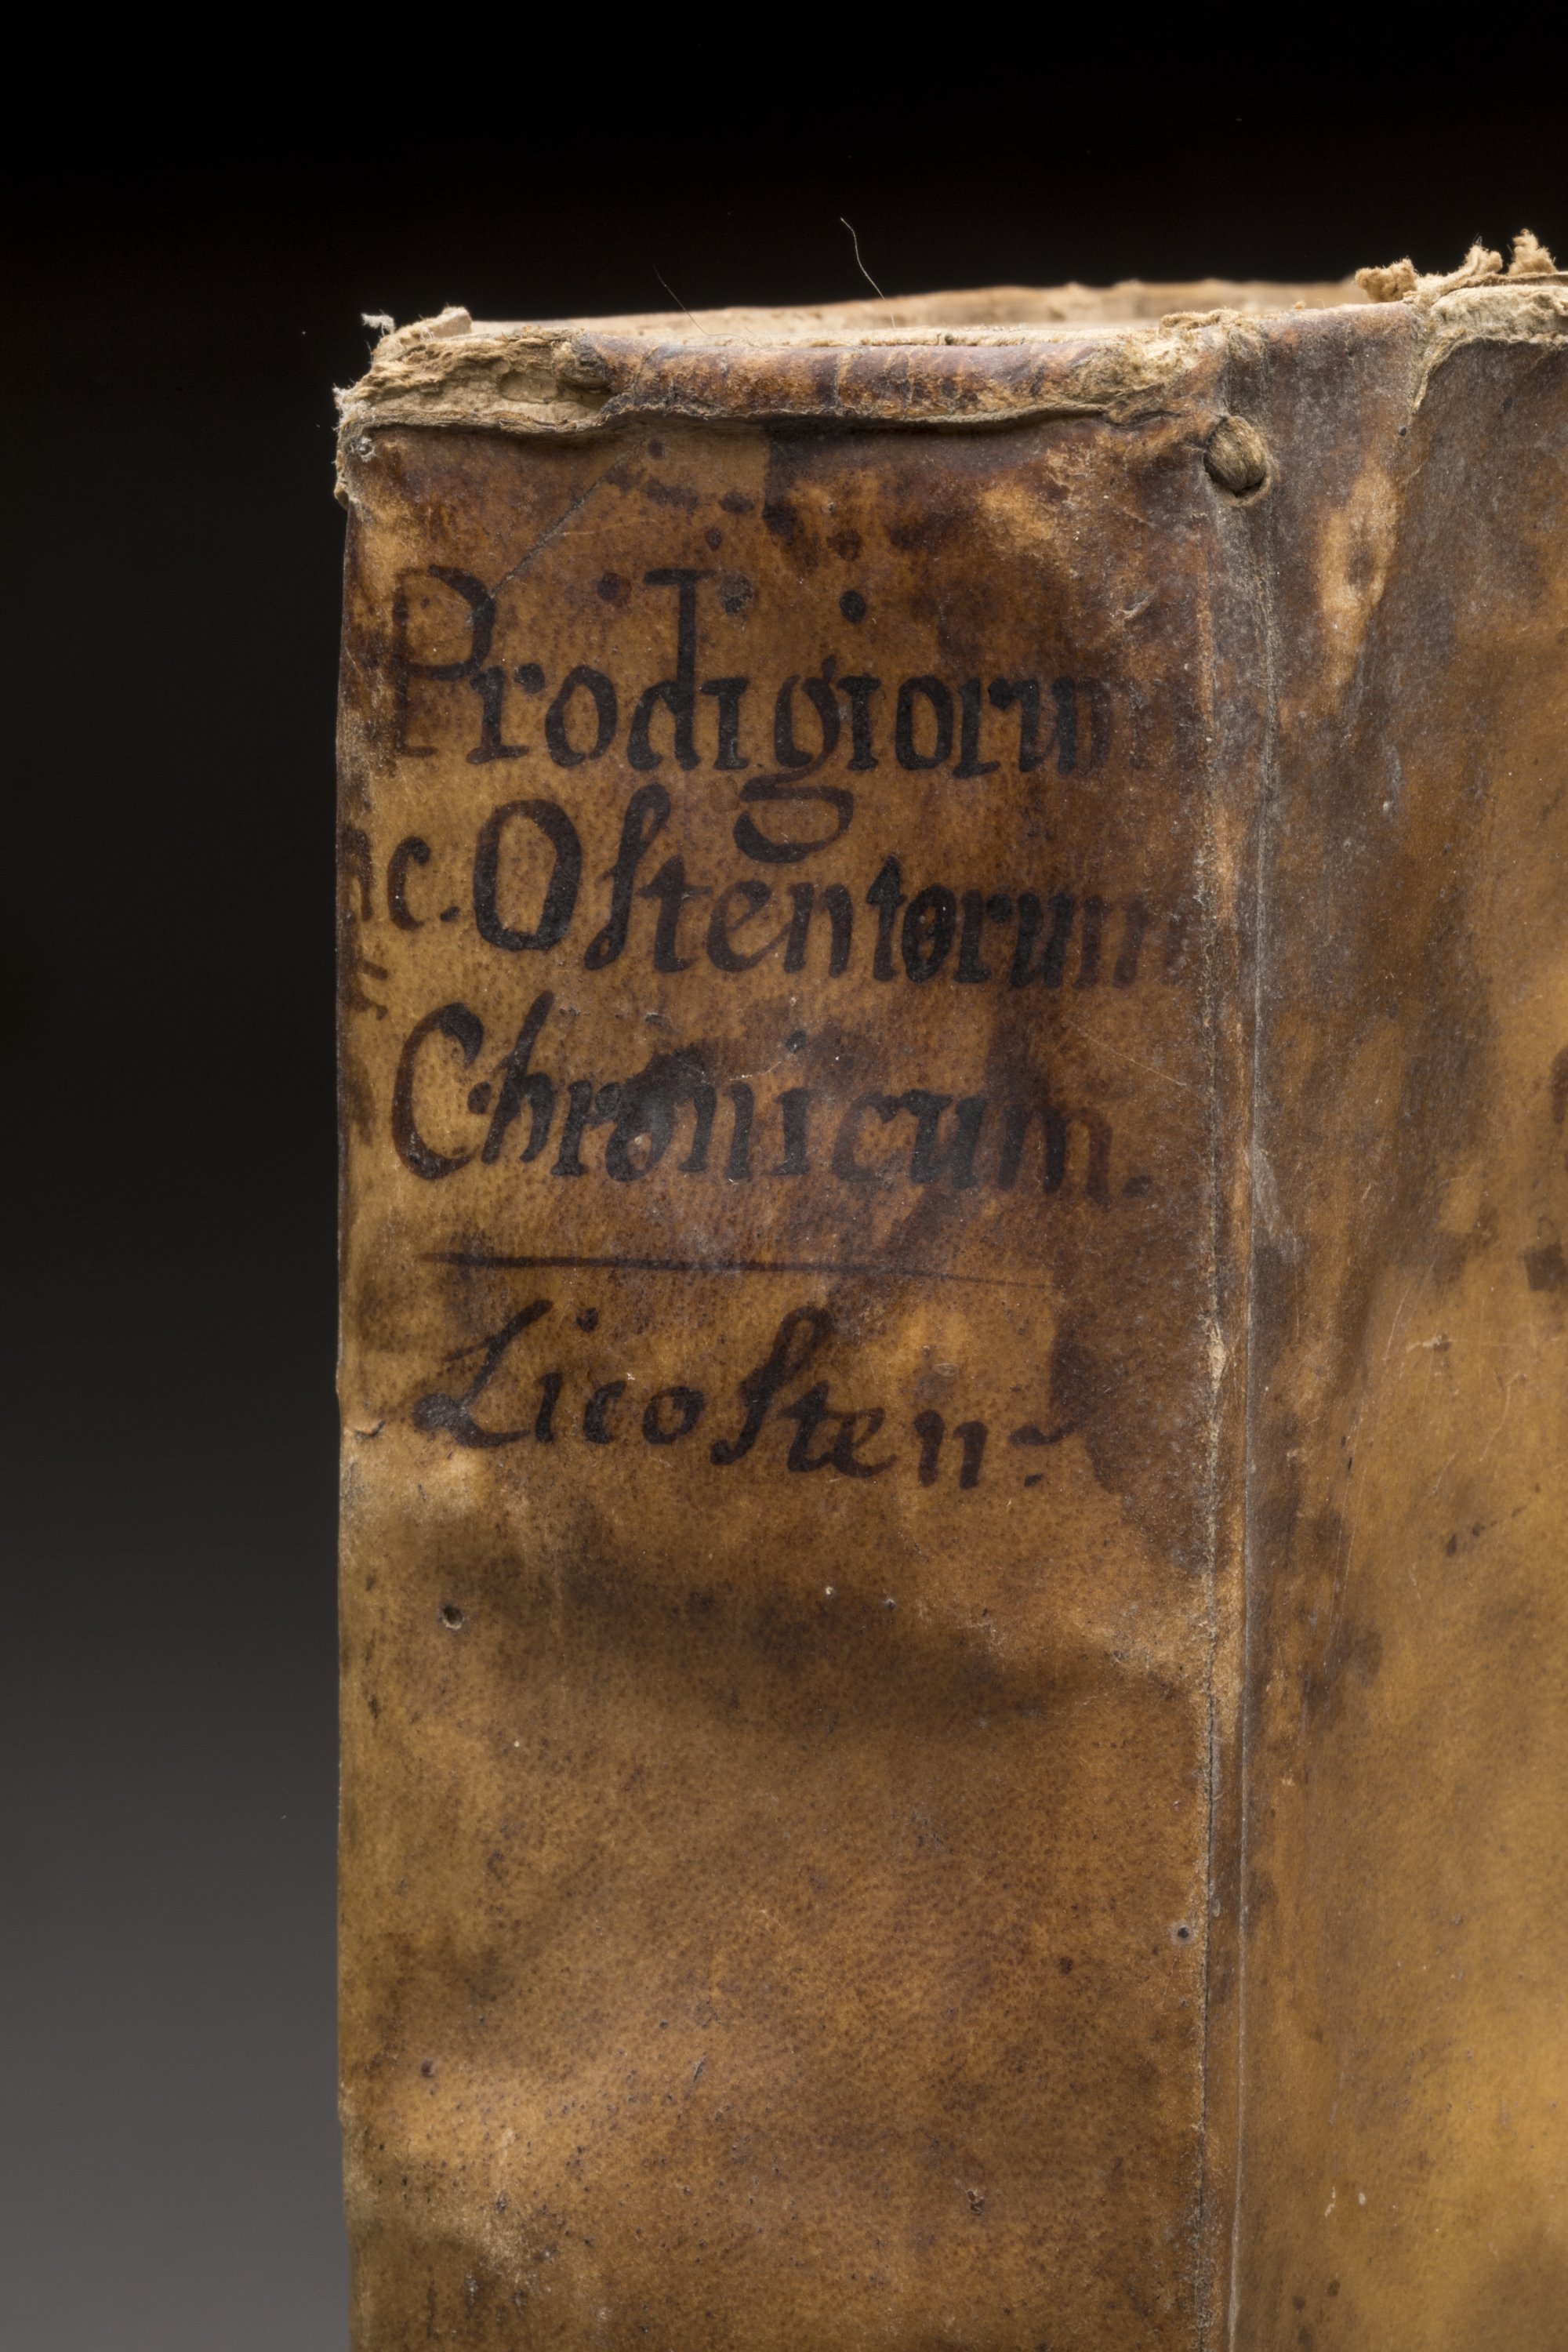 Prodigiorum
ac. Ostentorum
Chronicum.
Licosten